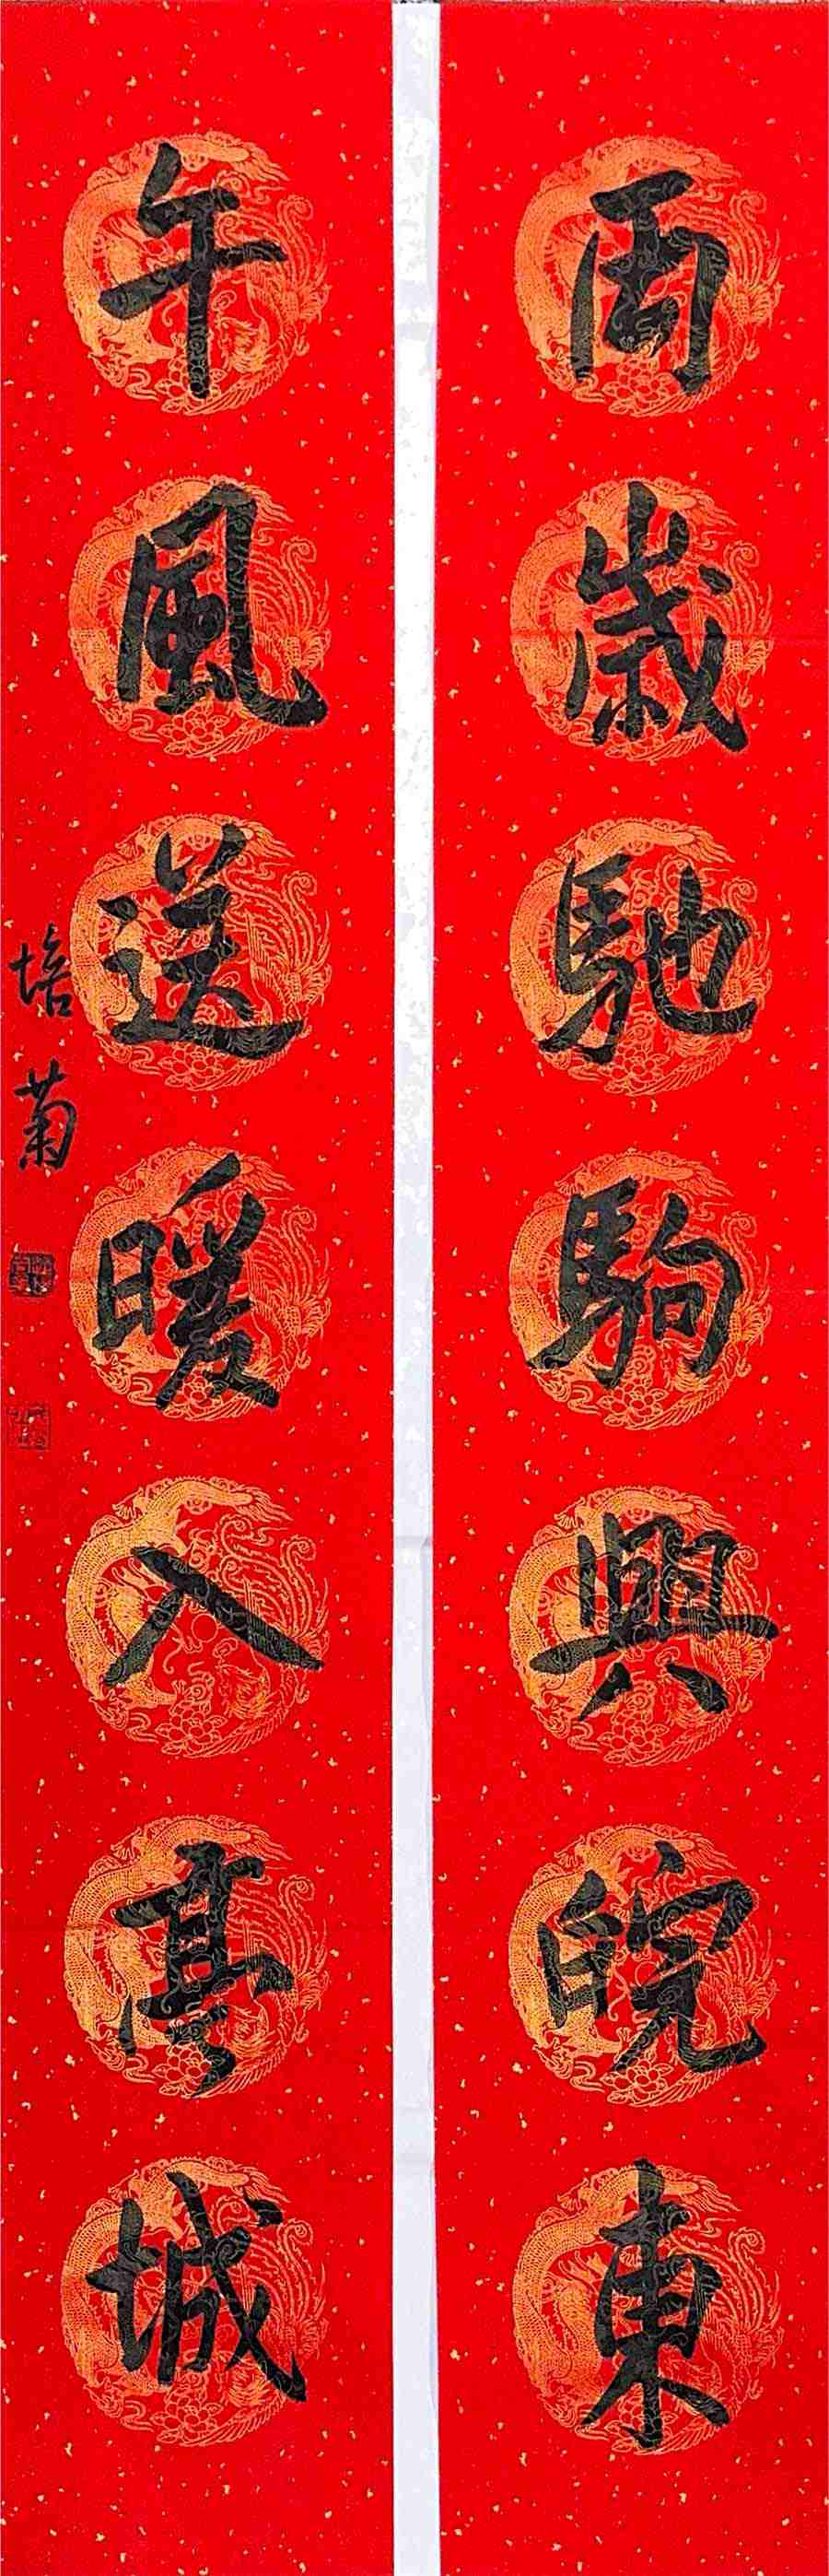 丙歲馳駒興皖東
午風送暖入亭城
培菊